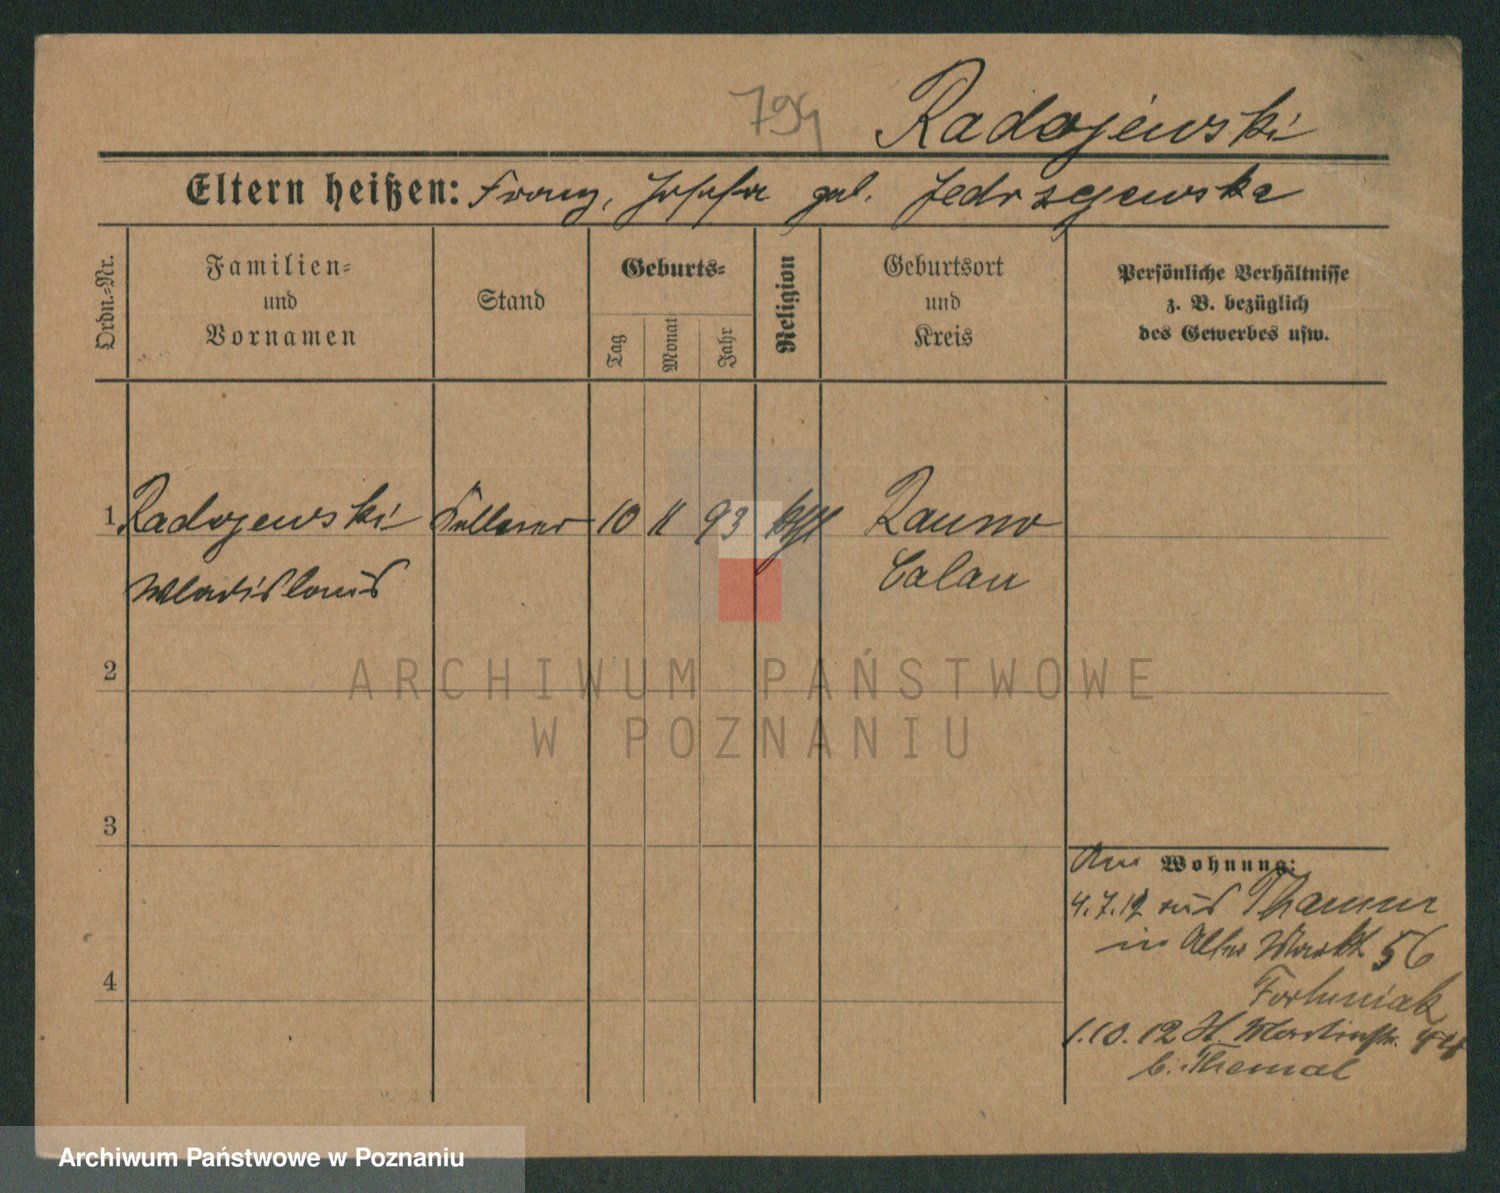 794 Radojewski
Eltern heißen: Franz, Josefa geb. Jedrzejewska
Ordn.-Nr.
Familien-
und
Vornamen
Stand
Geburts-
Tag
Monat
Jahr
Religion
Geburtsort
und
Kreis
Persönliche Verhältnisse
z. B. bezüglich
des Gewerbes usw.
1 Radojewski Kellner 10 11 93 kath Rauno
Wladislaus Calau
2
ARCHIWUM PAŃSTWOWE
W POZNANIU
3
Wohnung:
4.7.12 aus
in Alter Markt 56
4
1.10.12 St. Martinstr. 44
b.
Archiwum Państwowe w Poznaniu